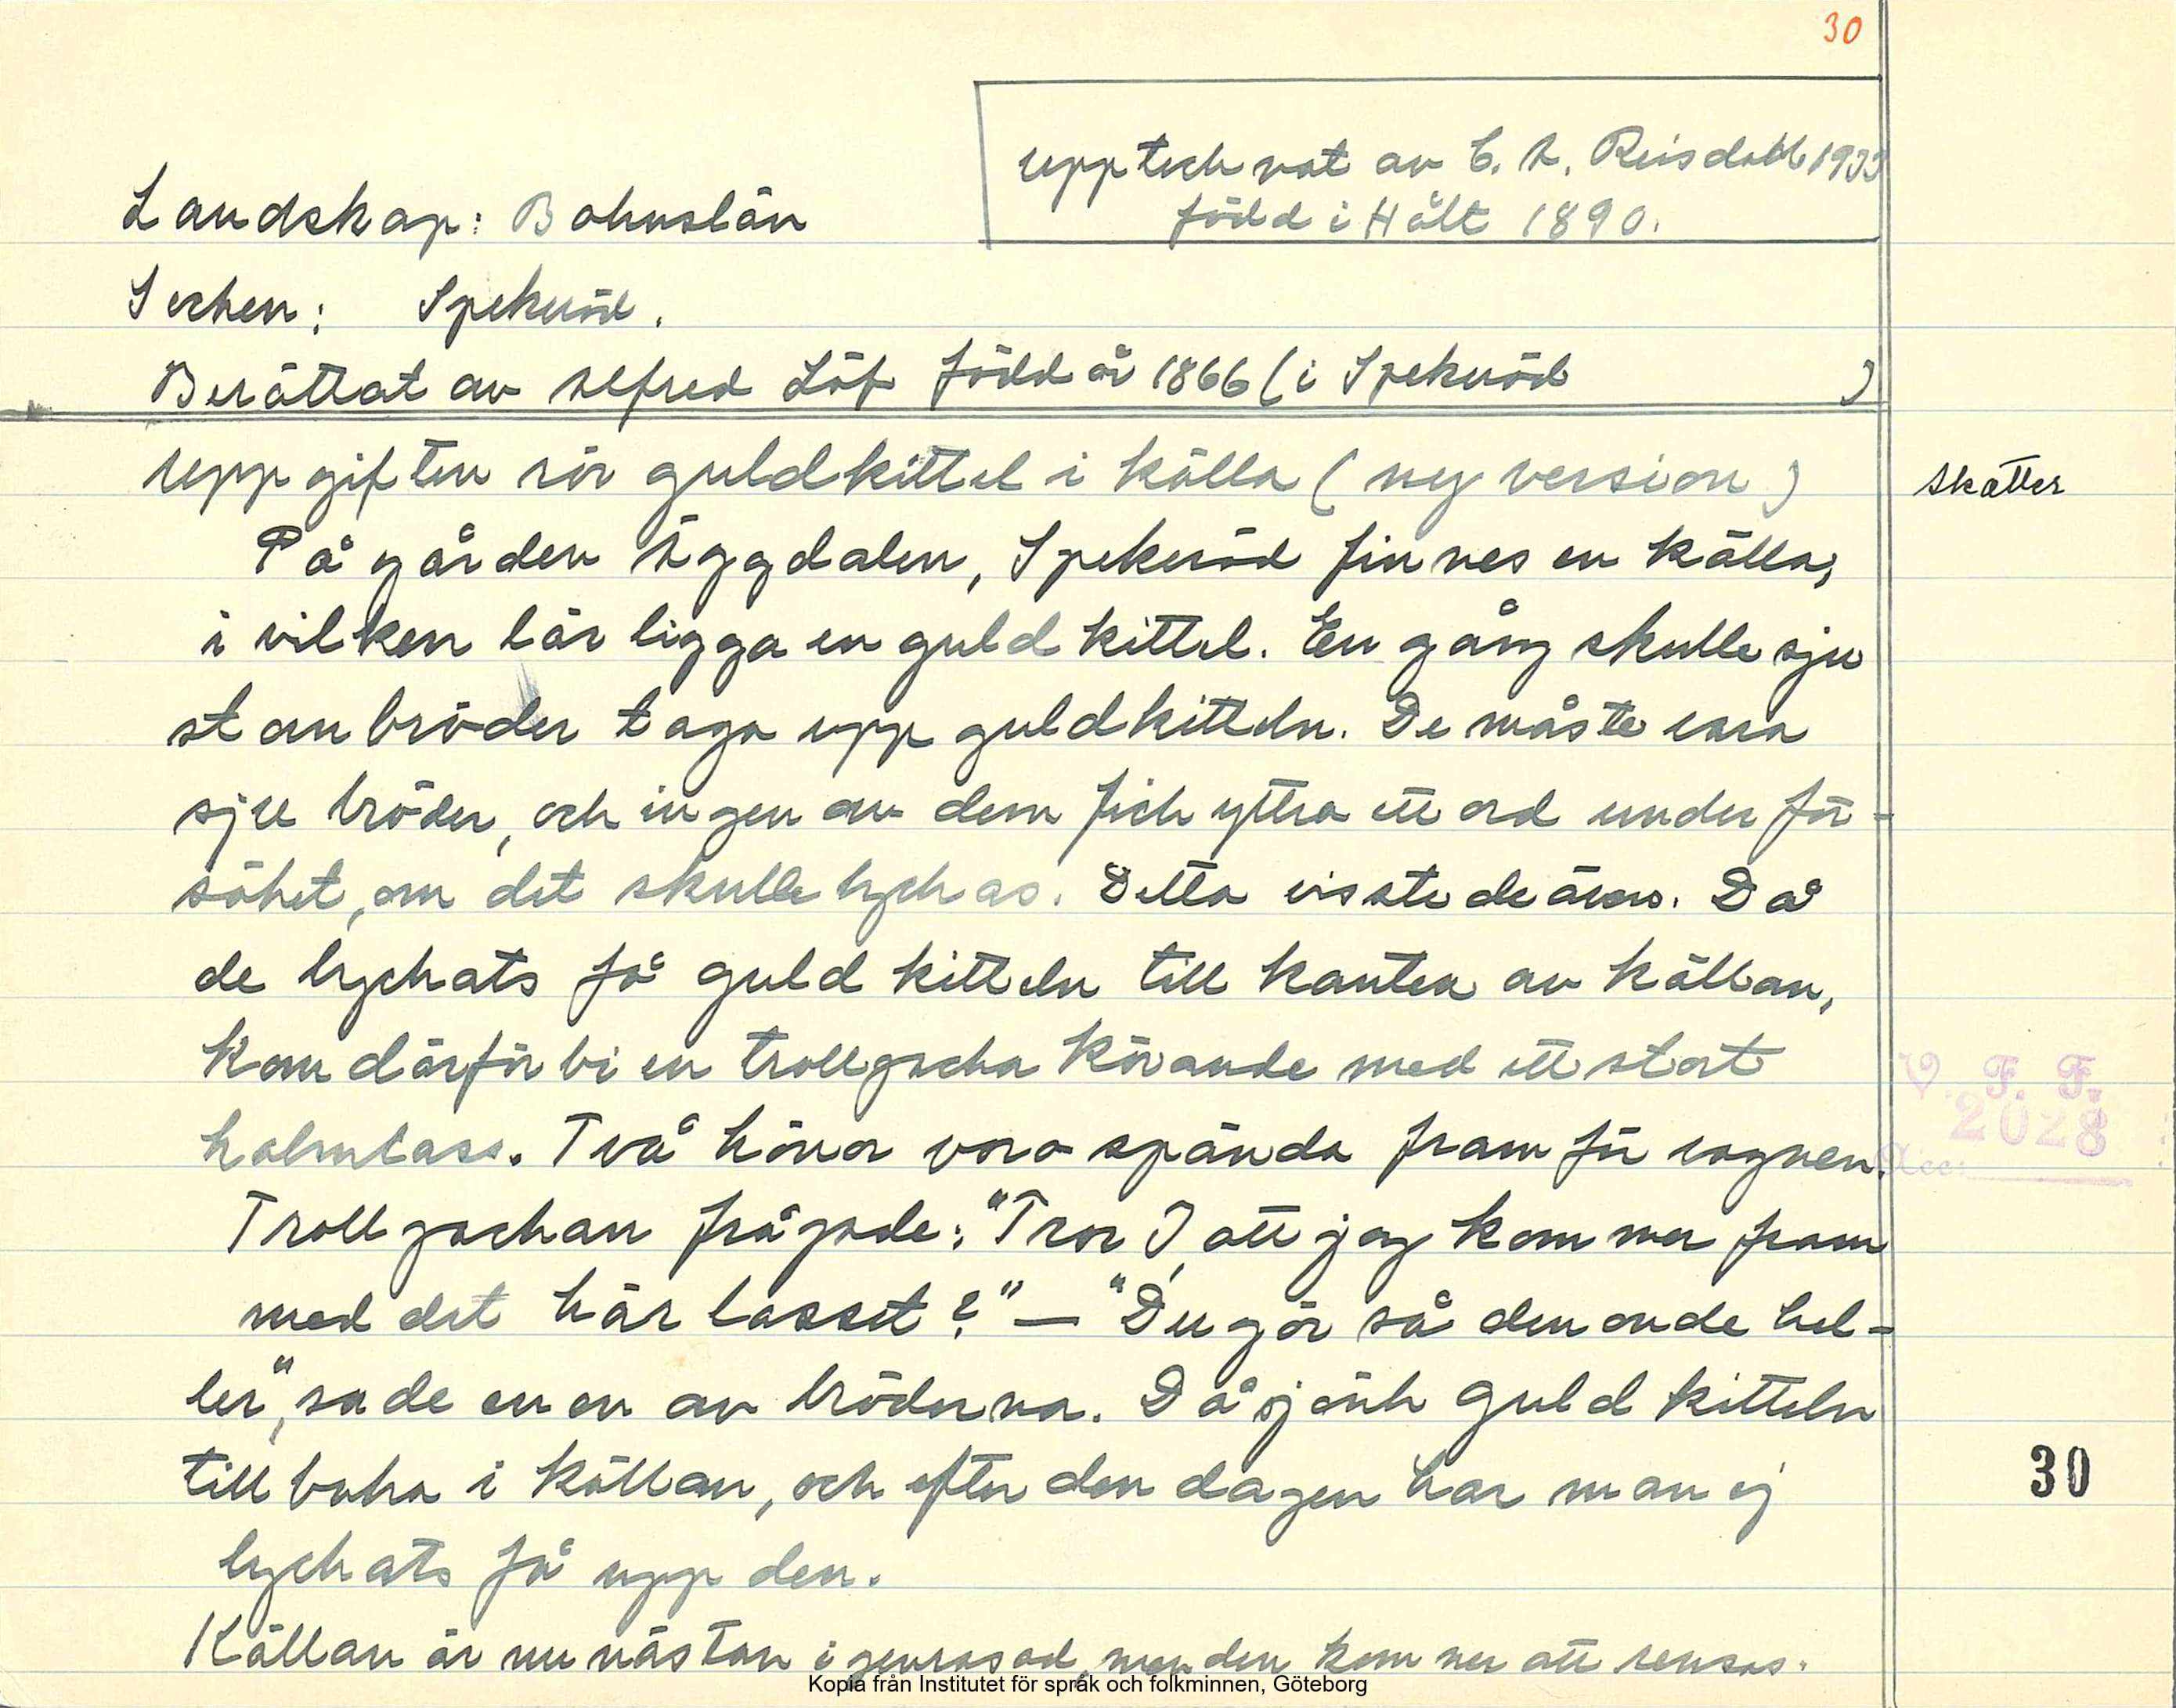 30
Upptecknat av C. A. Reisdahl 1933
född i Hålt 1890.
Landskap: Bohuslän
Socken: Spekeröd.
Berättat av Alfred Löf född år 1866 (i Spekeröd )
Uppgiften rör guldkittel i källa (ny version)
Skatter
På gården Äggdalen, Spekeröd finnes en källa,
i vilken lär ligga en guldkittel. En gång skulle sju
stan bröder taga upp guldkitteln. De måste vara
sju bröder, och ingen av dem fick yttra ett ord under för-
söket, om det skulle lyckas. Detta visste de även. Då
de lyckats få guldkitteln till kanten av källan,
kom därförbi en trollgacka körande med ett stort
halmlass. Två hönor voro spända framför vagnen.
Trollgackan frågade: "Tror I, att jag kommer fram
med det här lasset?" — "Du gör så den onde hel-
ler", sade en av bröderna. Då sjönk guldkitteln
tillbaka i källan, och efter den dagen har man ej
lyckats få upp den.
Källan är nu nästan igenrasad, men den kommer att rensas.
V. F. F.
2028
Acc:
30
Kopia från Institutet för språk och folkminnen, Göteborg